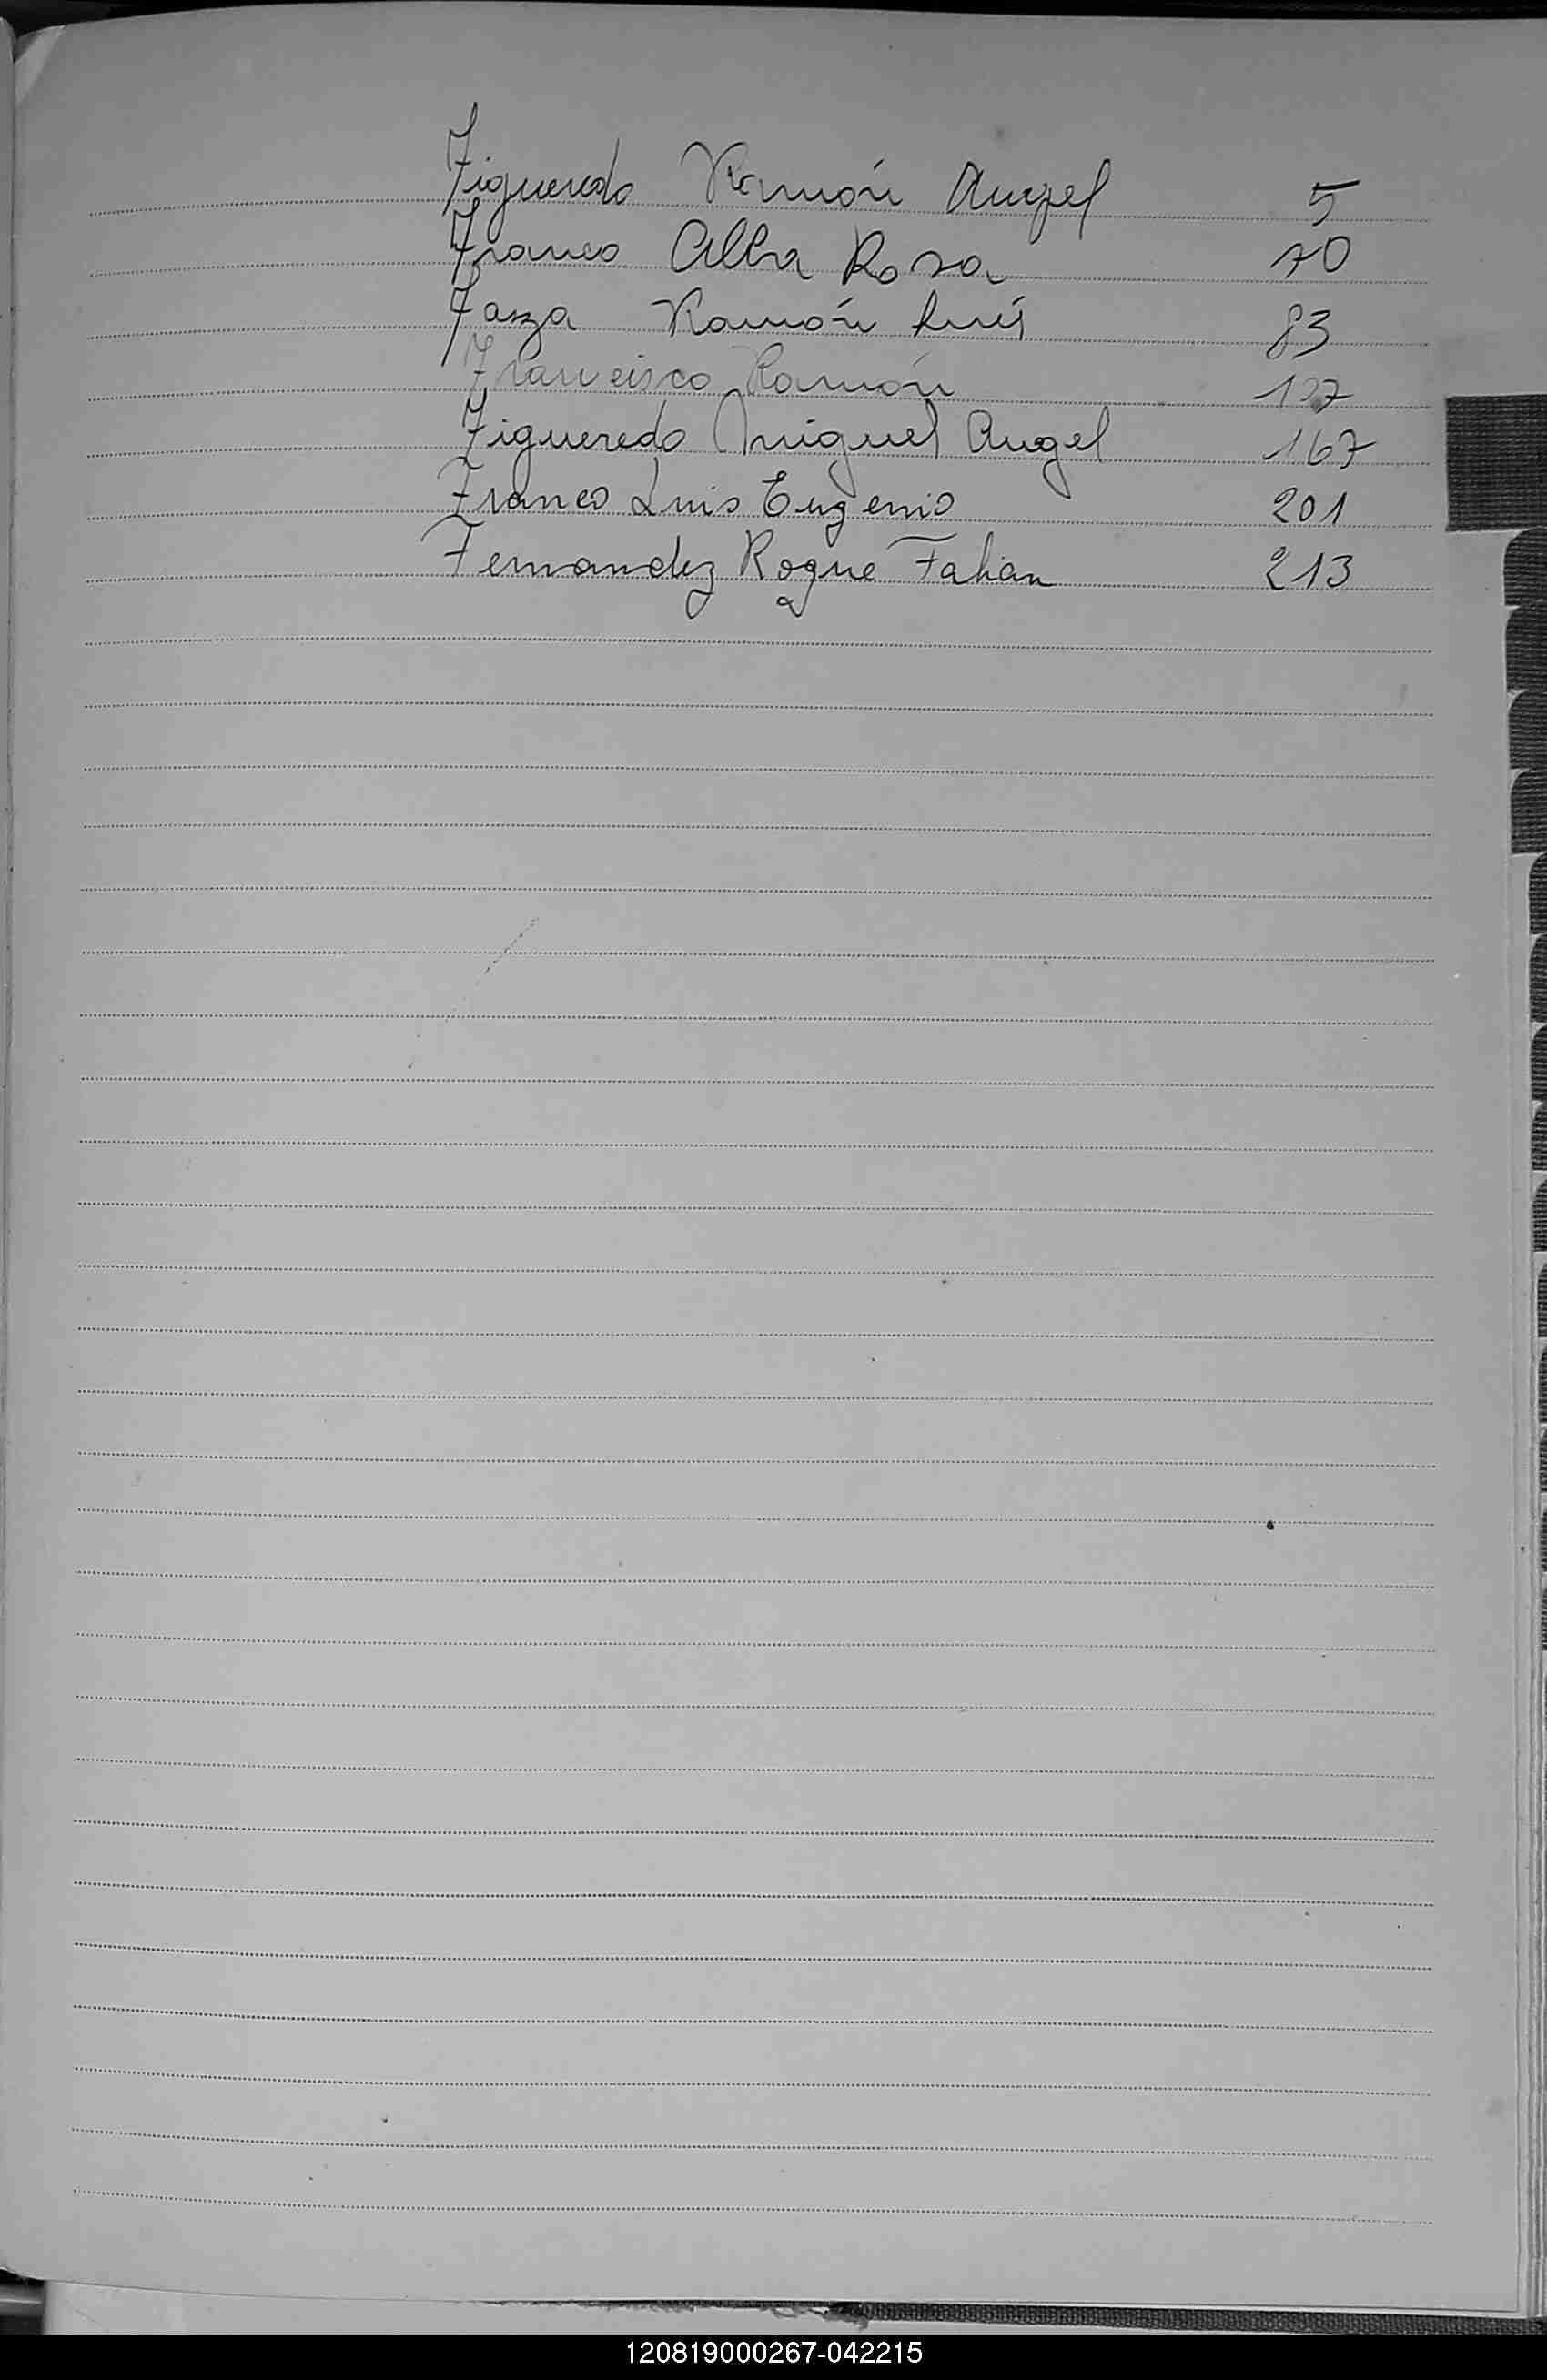 Figueredo Ramón Angel 5
Franco Alba Rosa 70
Ramón Luís 83
Francisco Ramón
Figueredo Miguel Angel 167
Franco Luis Eugenio 201
Fernandez Roque Fabian 213
120819000267-042215